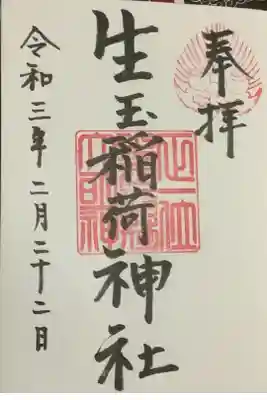 奉拝
生玉稲荷神社
令和三年二月二十二日